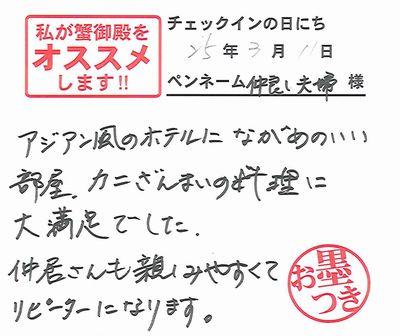 私が蟹御殿を
オススメ
します!!
チェックインの日にち
25年3月11日
ペンネーム 仲良し夫婦 様
アジアン風のホテルに ながめのいい
部屋、カニざんまいの料理に
大満足でした。
仲居さんも親しみやすくて
リピーターになります。
お墨つき